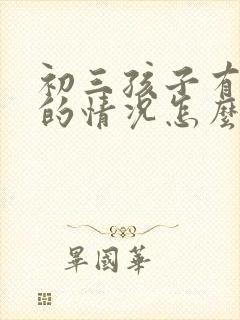 初三孩子有
的情況怎麼
畢國華